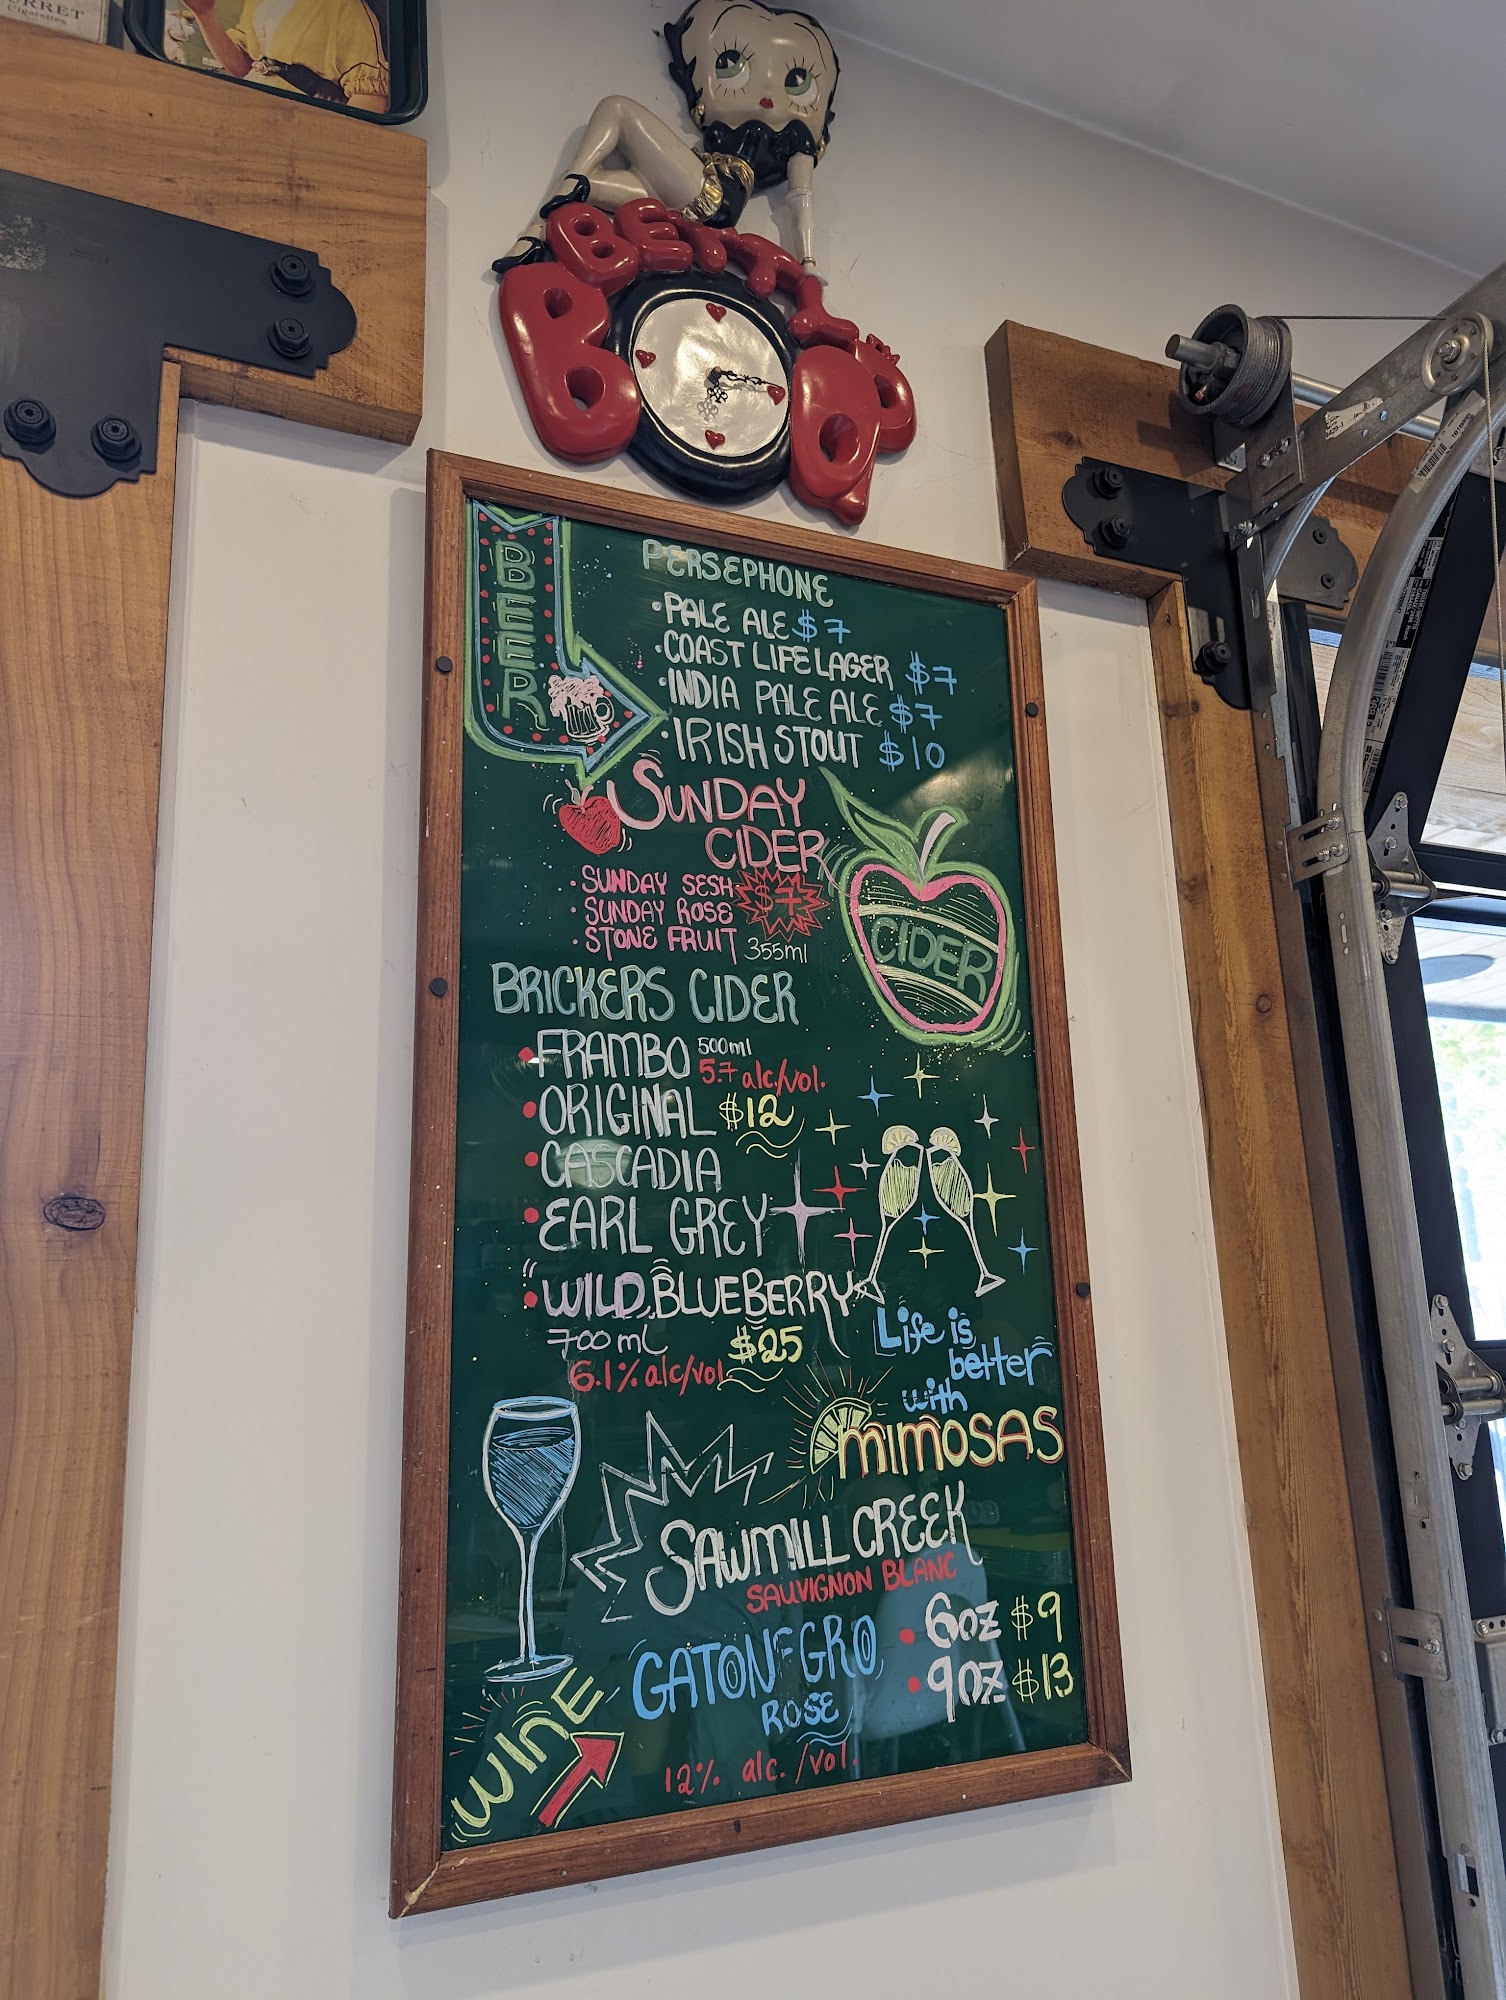 RRET
Cigarettes
BETTY
BOOP
BEER
PERSEPHONE
• PALE ALE $7
• COAST LIFE LAGER $7
• INDIA PALE ALE $7
• IRISH STOUT $10
SUNDAY
CIDER
• SUNDAY SESH $7
• SUNDAY ROSE
• STONE FRUIT 355ml
CIDER
BRICKERS CIDER
• FRAMBO 500ml
5.7 alc./vol.
• ORIGINAL $12
• CASCADIA
• EARL GREY
• WILD BLUEBERRY
700 ml $25
6.1% alc/vol.
Life is
better
with
mimosas
SAWMILL CREEK
SAUVIGNON BLANC
GATONEGRO
ROSE
• 6oz $9
• 9oz $13
WINE
12% alc./vol.